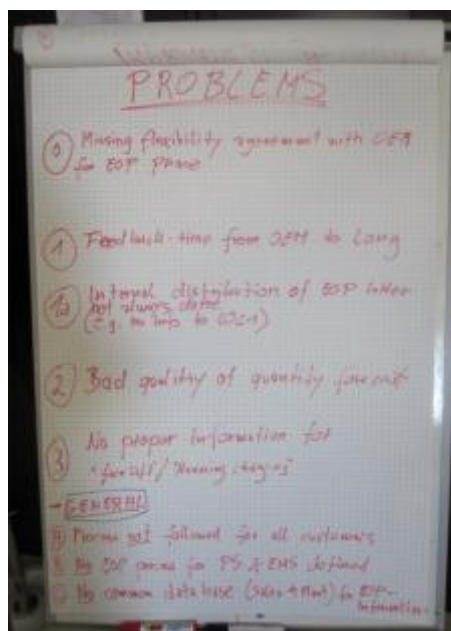 PROBLEMS
0 Missing flexibility agreement with OEM
for EOP phase
1 Feedback-time from OEM to long
1a Internal distribution of EOP letter
not always done
(e.g. no info to
2 Bad quality of quantity forecast
3 No proper information for
/ Running changes"
→ GENERAL
A Process not followed for all customers
B No EOP process for PS & EMS defined
C No common database (Sales + Plant) for EOP-
Information